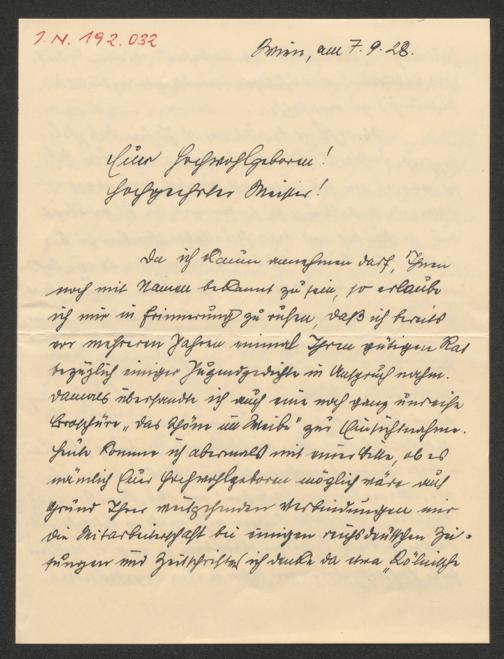 I.N. 192.032
Wien, am 7.9.28.
Euer Hochwohlgeboren!
Hochgeehrter Meister!
Da ich kaum annehmen darf, Ihnen
noch mit Namen bekannt zu sein, so erlaube
ich mir in Erinnerung zu rufen, daß ich bereits
vor mehreren Jahren einmal Ihren gütigen Rat
bezüglich einiger Jugendgedichte in Anspruch nahm.
Damals übersandte ich auch eine noch ganz unreife
Broschüre „Das Schöne im Weibe" zur Einsichtnahme.
Heute komme ich abermals mit einer Bitte, ob es
nämlich Euer Hochwohlgeboren möglich wäre auf
Grund Ihrer weitgehenden Verbindungen mir
die Mitarbeiterschaft bei einigen reichsdeutschen Zei=
tungen und Zeitschriften (ich denke da etwa „Kölnische